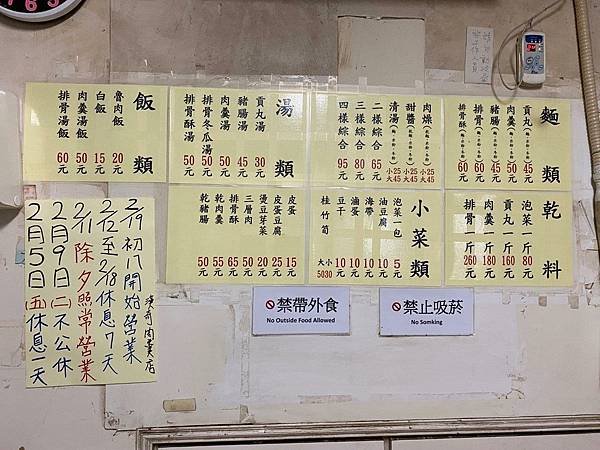 麵類
貢丸（麵、米粉、冬粉）45元
肉羹（麵、米粉、冬粉）50元
豬腸（麵、米粉、冬粉）45元
排骨（麵、米粉、冬粉）60元
排骨酥（麵、米粉、冬粉）60元
肉燥（麵、米粉、冬粉）小25 大45元
甜醬（麵、米粉、冬粉）小25 大45元
清湯（麵、米粉、冬粉）小25 大45元
二樣綜合 65元
三樣綜合 80元
四樣綜合 95元
湯類
貢丸湯 30元
豬腸湯 45元
肉羹湯 50元
排骨冬瓜湯 50元
排骨酥湯 50元
飯類
魯肉飯 20元
白飯 15元
肉羹湯飯 50元
排骨湯飯 60元
乾料
泡菜一斤 80元
貢丸一斤 160元
肉羹一斤 180元
排骨一斤 260元
小菜類
泡菜一包 5元
油豆腐 10元
海帶 10元
滷蛋 10元
豆干 10元
桂竹筍 大小 5030元
皮蛋 15元
皮蛋豆腐 25元
燙豆芽菜 20元
三層肉 50元
排骨酥 50元
乾肉羹 65元
乾豬腸 55元
2/19初八開始營業
2/12至2/18休息7天
2/11除夕照常營業
2月9日(二)不公休
2月5日(五)休息一天
禁帶外食
No Outside Food Allowed
禁止吸菸
No Somking